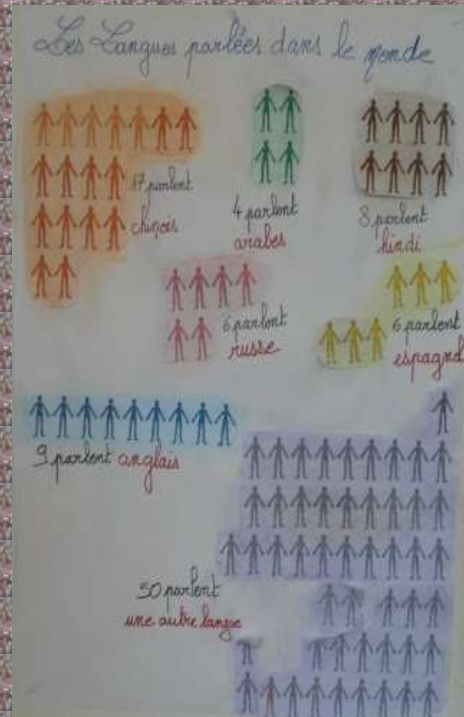 Les Langues parlées dans le monde
17 parlent
chinois
4 parlent
arabes
8 parlent
hindi
6 parlent
russe
6 parlent
espagnol
9 parlent anglais
50 parlent
une autre langue